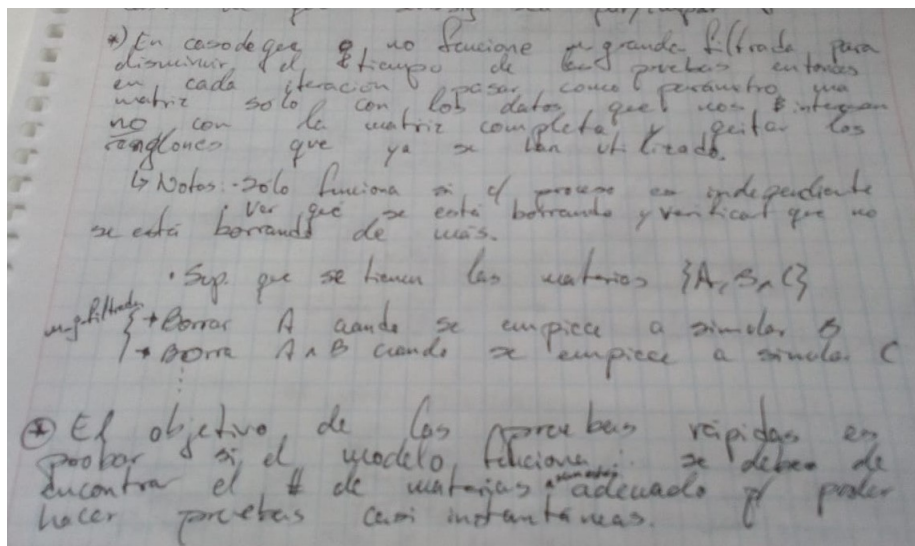 *) En caso de que no funcione m_grande_filtrada para
disminuir el tiempo de las pruebas entonces
en cada iteración pasar como parámetro una
matriz solo con los datos que nos integran
no con la matriz completa y quitar los
renglones que ya se han utilizado.
↳ Notas: - Sólo funciona si c/ proceso es independiente
· Ver que se está borrando y verificar que no
se está borrando de más.
· Sup. que se tienen las materias {A, B, C}
m_g_filtrada { → Borrar A cuando se empiece a simular B
→ Borra A ∧ B cuando se empiece a simular C
⊛ El objetivo de las pruebas rápidas es
probar si el modelo funciona ∴ se debe de
encontrar el # de materias adecuado p/ poder
hacer pruebas casi instantáneas.